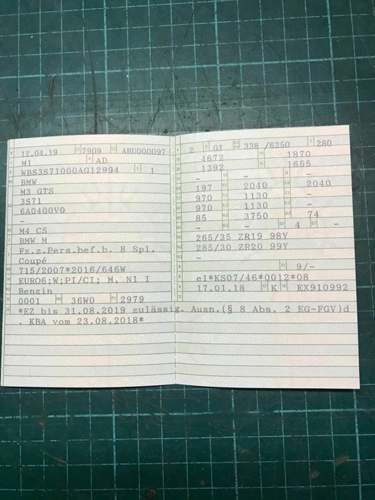 12.04.19 7909 ABD000097
M1 AD
WBS3S71000A012994 1
BMW
M3 GTS
3S71
6A0400V0
-
M4 CS
BMW M
Fz.z.Pers.bef.b. 8 Spl.
Coupé
715/2007*2016/646W
EURO6;W;PI/CI; M, N1 I
Benzin
0001 36W0 2979
*EZ bis 31.08.2019 zulässig. Ausn.(§ 8 Abs. 2 EG-FGV)d
. KBA vom 23.08.2018*
2 01 338 /6250 280
4672 1870
1392 1655
- - -
197 2040 2040
970 1130 -
970 1130 -
85 3750 74
- - 4 -
265/35 ZR19 98Y
285/30 ZR20 99Y
- -
9/-
e1*KS07/46*0012*08
17.01.18 K EX910992